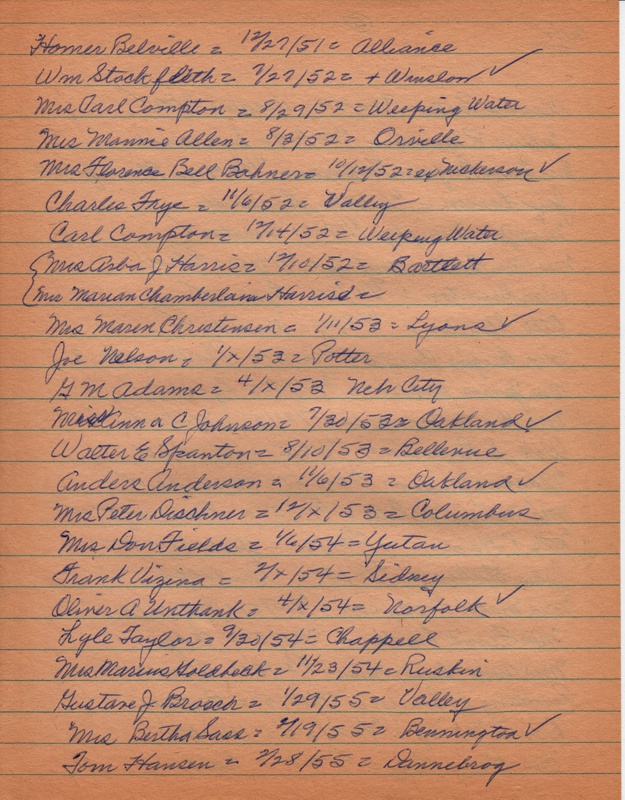 Homer Belville = 12/27/51 = Alliance
Wm Stock fleth = 7/27/52 = + Winslow ✓
Mrs Carl Compton = 8/29/52 = Weeping Water
Mrs Mannie Allen = 8/3/52 = Orville
Mrs Florence Bell Bohner = 10/12/52 = ex Nickerson ✓
Charles Frye = 11/6/52 = Valley
Carl Compton = 12/14/52 = Weeping Water
Mrs Arba J Harris = 12/10/52 = Bartlett
Mrs Marian Chamberlain Harris =
Mrs Maren Christensen = 1/11/53 = Lyons ✓
Joe Nelson = 1/x/53 = Potter
G M Adams = 4/x/53 Nebr City
Minna C Johnson = 7/30/53 = Oakland ✓
Walter E Spanton = 8/10/53 = Bellevue
Anders Anderson = 11/6/53 = Oakland ✓
Mrs Peter Dischner = 12/x/53 = Columbus
Mrs Don Fields = 1/6/54 = Yutan
Frank Vizina = 2/x/54 = Sidney
Oliver A Unthank = 4/x/54 = Norfolk ✓
Lyle Taylor = 9/30/54 = Chappell
Mrs Marius Goldbeck = 11/23/54 = Ruskin
Gustave J Brosch = 1/29/55 = Valley
Mrs Bertha Sass = 2/19/55 = Bennington ✓
Tom Hansen = 2/28/55 = Dannebrog